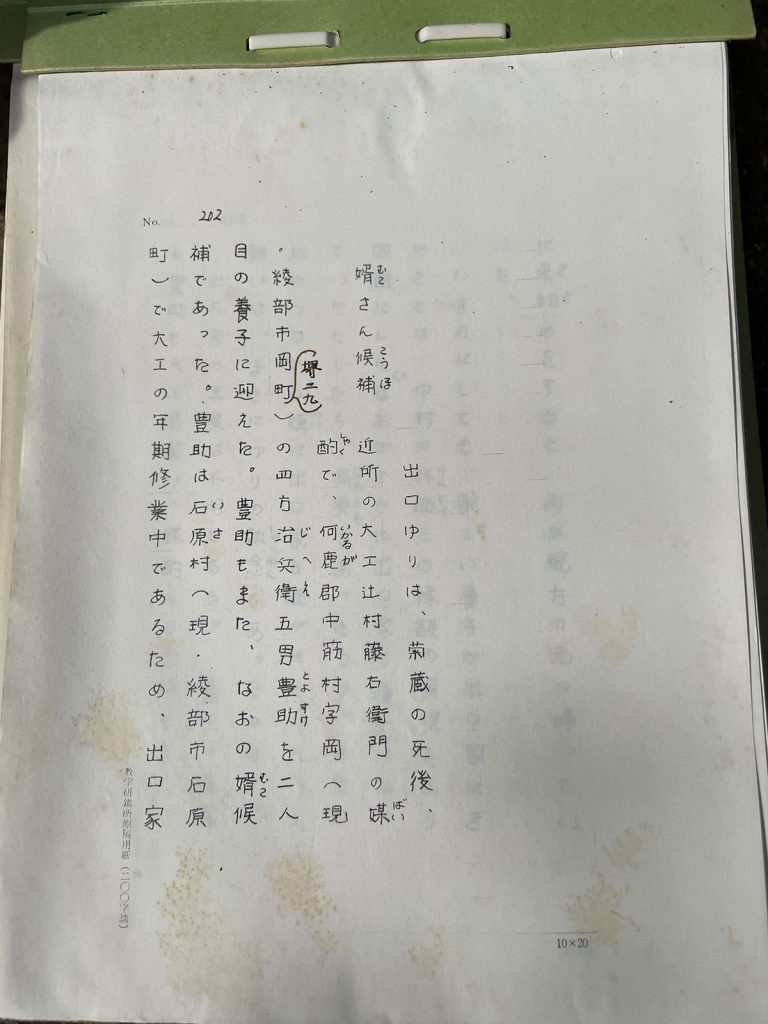 No. 202
婿さん候補
むこ
こうほ
出口ゆりは、菊蔵の死後、
近所の大工辻村藤右衛門の媒
ばい
酌で、何鹿郡中筋村字岡（現
しゃく
いかるが
・綾部市岡町）の四方治兵衛五男豊助を二人
じへえ
とよすけ
目の養子に迎えた。豊助もまた、なおの婿候
むこ
補であった。豊助は石原村（現・綾部市石原
いさ
町）で大工の年期修業中であるため、出口家
10×20